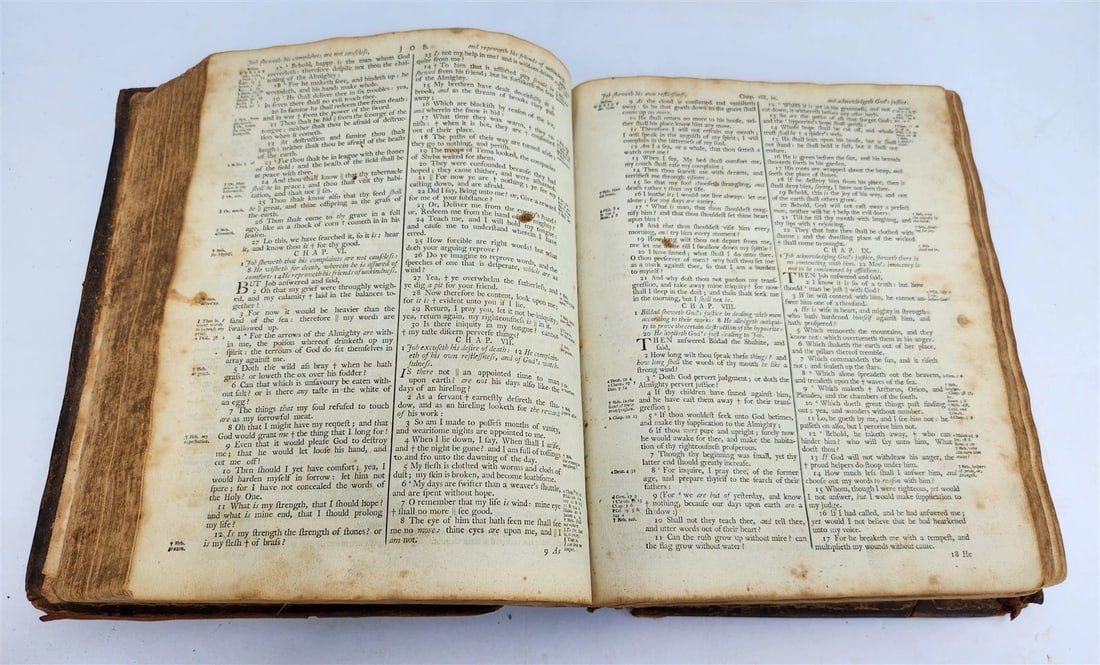 Job ſheweth his complaints are not cauſeleſs,
J O B.
and reproveth his friends of
17 Behold, happy is the man whom God
correcteth: therefore deſpiſe not thou the chaſ-
tening of the Almighty:
18 For he maketh ſore, and bindeth up: he
woundeth, and his hands make whole.
19 He ſhall deliver thee in ſix troubles: yea,
in ſeven there ſhall no evil touch thee.
20 In famine he ſhall redeem thee from death:
and in war † from the power of the ſword.
21 Thou ſhalt be hid from the ſcourge of the
tongue: neither ſhalt thou be afraid of deſtruc-
tion when it cometh.
22 At deſtruction and famine thou ſhalt
laugh: neither ſhalt thou be afraid of the beaſts
of the earth.
23 For thou ſhalt be in league with the ſtones
of the field: and the beaſts of the field ſhall be
at peace with thee.
24 And thou ſhalt know that thy tabernacle
ſhall be in peace; and thou ſhalt viſit thy habi-
tation, and ſhalt not ‖ ſin.
25 Thou ſhalt know alſo that thy ſeed ſhall
be ‖ great, and thine offspring as the graſs of
the earth.
26 Thou ſhalt come to thy grave in a full
age, like as a ſhock of corn † cometh in in his
ſeaſon.
27 Lo this, we have ſearched it, ſo it is; hear
it, and know thou it † for thy good.
C H A P. VI.
1 Job ſheweth that his complaints are not cauſeleſs:
8 He wiſheth for death, wherein he is aſſured of
comfort: 14 He reproveth his friends of unkindneſs.
BUT Job anſwered and ſaid,
2 Oh that my grief were throughly weigh-
ed, and my calamity † laid in the balances to-
gether!
3 For now it would be heavier than the
ſand of the ſea: therefore ‖ my words are
ſwallowed up.
4 For the arrows of the Almighty are with-
in me, the poiſon whereof drinketh up my
ſpirit: the terrours of God do ſet themſelves in
array againſt me.
5 Doth the wild aſs bray † when he hath
graſs? or loweth the ox over his fodder?
6 Can that which is unſavoury be eaten with-
out ſalt? or is there any taſte in the white of
an egg?
7 The things that my ſoul refuſed to touch
are as my ſorrowful meat.
8 Oh that I might have my requeſt; and that
God would grant me † the thing that I long for!
9 Even that it would pleaſe God to deſtroy
me; that he would let looſe his hand, and
cut me off!
10 Then ſhould I yet have comfort; yea, I
would harden myſelf in ſorrow: let him not
ſpare; for I have not concealed the words of
the Holy One.
11 What is my ſtrength, that I ſhould hope?
and what is mine end, that I ſhould prolong
my life?
12 Is my ſtrength the ſtrength of ſtones? or
is my fleſh † of braſs?
13 Is not my help in me? and is wiſdom driven
quite from me?
14 To him that is afflicted pity ſhould be
ſhewed from his friend; but he forſaketh the fear
of the Almighty.
15 My brethren have dealt deceitfully as a
brook, and as the ſtream of brooks they paſs
away;
16 Which are blackiſh by reaſon of the ice,
17 What time they wax warm, they
vaniſh: † when it is hot, they are
out of their place.
18 The paths of their way are turned aſide;
they go to nothing, and periſh.
19 The troops of Tema looked, the companies
of Sheba waited for them.
20 They were confounded becauſe they had
hoped; they came thither, and were aſhamed.
21 ‖ For now ye are † nothing; ye ſee my
caſting down, and are afraid.
22 Did I ſay, Bring unto me? or, Give a reward
for me of your ſubſtance?
23 Or, Deliver me from the enemy's hand?
or, Redeem me from the hand of the mighty?
24 Teach me, and I will hold my tongue:
and cauſe me to underſtand wherein I have
erred.
25 How forcible are right words! but what
doth your arguing reprove?
26 Do ye imagine to reprove words, and the
ſpeeches of one that is deſperate, which are as
wind?
27 Yea, † ye overwhelm the fatherleſs, and
ye dig a pit for your friend.
28 Now therefore be content, look upon me;
for it is † evident unto you if I lie.
29 Return, I pray you, let it not be iniquity;
yea, return again, my righteouſneſs is ‖ in it.
30 Is there iniquity in my tongue? cannot
† my taſte diſcern perverſe things?
C H A P. VII.
1 Job excuſeth his deſire of death: 12 He complain-
eth of his own reſtleſſneſs, and of God's watch-
fulneſs.
IS there not ‖ an appointed time to man
upon earth? are not his days alſo like the
days of an hireling?
2 As a ſervant † earneſtly deſireth the ſha-
dow, and as an hireling looketh for the reward
of his work:
3 So am I made to poſſeſs months of vanity,
and weariſome nights are appointed to me.
4 When I lie down, I ſay, When ſhall I ariſe,
and † the night be gone? and I am full of toſſings
to and fro unto the dawning of the day.
5 My fleſh is clothed with worms and clods of
duſt; my ſkin is broken, and become loathſome.
6 My days are ſwifter than a weaver's ſhuttle,
and are ſpent without hope.
7 O remember that my life is wind: mine eye
† ſhall no more ‖ ſee good.
8 The eye of him that hath ſeen me ſhall ſee
me no more: thine eyes are upon me, and ‖ I
am not.
9 As
Job ſheweth his own reſtleſſneſs,
Chap. viii, ix.
and acknowledgeth God's juſtice.
9 As the cloud is conſumed and vaniſheth
away: ſo he that goeth down to the grave ſhall
come up no more.
10 He ſhall return no more to his houſe, nei-
ther ſhall his place know him any more.
11 Therefore I will not refrain my mouth;
I will ſpeak in the anguiſh of my ſpirit; I will
complain in the bitterneſs of my ſoul.
12 Am I a ſea, or a whale, that thou ſetteſt a
watch over me?
13 When I ſay, My bed ſhall comfort me,
my couch ſhall eaſe my complaint;
14 Then thou ſcareſt me with dreams, and
terrifieſt me through viſions:
15 So that my ſoul chooſeth ſtrangling, and
death rather † than my life.
16 I loathe it; I would not live alway: let me
alone; for my days are vanity.
17 What is man, that thou ſhouldeſt mag-
nify him? and that thou ſhouldeſt ſet thine heart
upon him?
18 And that thou ſhouldeſt viſit him every
morning, and try him every moment?
19 How long wilt thou not depart from me,
nor let me alone till I ſwallow down my ſpittle?
20 I have ſinned; what ſhall I do unto thee,
O thou preſerver of men? why haſt thou ſet me
as a mark againſt thee, ſo that I am a burden
to myſelf?
21 And why doſt thou not pardon my tranſ-
greſſion, and take away mine iniquity? for now
ſhall I ſleep in the duſt; and thou ſhalt ſeek me
in the morning, but I ſhall not be.
C H A P. VIII.
1 Bildad ſheweth God's juſtice in dealing with men
according to their works: 8 He alledgeth antiqui-
ty to prove the certain deſtruction of the hypocrite:
20 He applieth God's juſt dealing to Job.
THEN anſwered Bildad the Shuhite, and
ſaid,
2 How long wilt thou ſpeak theſe things? and
how long ſhall the words of thy mouth be like a
ſtrong wind?
3 Doth God pervert judgment; or doth the
Almighty pervert juſtice?
4 If thy children have ſinned againſt him,
and he have caſt them away † for their tranſ-
greſſion;
5 If thou wouldeſt ſeek unto God betimes,
and make thy ſupplication to the Almighty;
6 If thou wert pure and upright; ſurely now
he would awake for thee, and make the habita-
tion of thy righteouſneſs proſperous.
7 Though thy beginning was ſmall, yet thy
latter end ſhould greatly increaſe.
8 For inquire, I pray thee, of the former
age, and prepare thyſelf to the ſearch of their
fathers:
9 (For we are but of yeſterday, and know
† nothing, becauſe our days upon earth are a
ſhadow:)
10 Shall not they teach thee, and tell thee,
and utter words out of their heart?
11 Can the ruſh grow up without mire? can
the flag grow without water?
12 Whilſt it is yet in his greenneſs, and not
cut down, it withereth before any other herb.
13 So are the paths of all that forget God;
and the hypocrite's hope ſhall periſh:
14 Whoſe hope ſhall be cut off, and whoſe
truſt ſhall be † a ſpider's web.
15 He ſhall lean upon his houſe, but it ſhall
not ſtand: he ſhall hold it faſt, but it ſhall not
endure.
16 He is green before the ſun, and his branch
ſhooteth forth in his garden.
17 His roots are wrapped about the heap, and
ſeeth the place of ſtones.
18 If he deſtroy him from his place, then it
ſhall deny him, ſaying, I have not ſeen thee.
19 Behold, this is the joy of his way, and out
of the earth ſhall others grow.
20 Behold, God will not caſt away a perfect
man, neither will he † help the evil doers:
21 Till he fill thy mouth with laughing, and
thy lips with † rejoicing.
22 They that hate thee ſhall be clothed with
ſhame; and the dwelling place of the wicked
† ſhall come to nought.
C H A P. IX.
1 Job acknowledging God's juſtice, ſheweth there is
no contending with him. 22 Man's innocency is
not to be condemned by afflictions.
THEN Job anſwered and ſaid,
2 I know it is ſo of a truth: but how
ſhould man be juſt ‖ with God?
3 If he will contend with him, he cannot an-
ſwer him one of a thouſand.
4 He is wiſe in heart, and mighty in ſtrength:
who hath hardened himſelf againſt him, and
hath proſpered?
5 Which removeth the mountains, and they
know not: which overturneth them in his anger.
6 Which ſhaketh the earth out of her place,
and the pillars thereof tremble.
7 Which commandeth the ſun, and it riſeth
not; and ſealeth up the ſtars.
8 Which alone ſpreadeth out the heavens,
and treadeth upon the † waves of the ſea.
9 Which maketh † Arcturus, Orion, and
Pleiades, and the chambers of the ſouth.
10 Which doeth great things paſt finding
out; yea, and wonders without number.
11 Lo, he goeth by me, and I ſee him not: he
paſſeth on alſo, but I perceive him not.
12 Behold, he taketh away, † who can
hinder him? who will ſay unto him, What
doeſt thou?
13 If God will not withdraw his anger, the
† proud helpers do ſtoop under him.
14 How much leſs ſhall I anſwer him, and
chooſe out my words to reaſon with him!
15 Whom, though I were righteous, yet would
I not anſwer, but I would make ſupplication to
my judge.
16 If I had called, and he had anſwered me;
yet would I not believe that he had hearkened
unto my voice.
17 For he breaketh me with a tempeſt, and
multiplieth my wounds without cauſe.
18 He